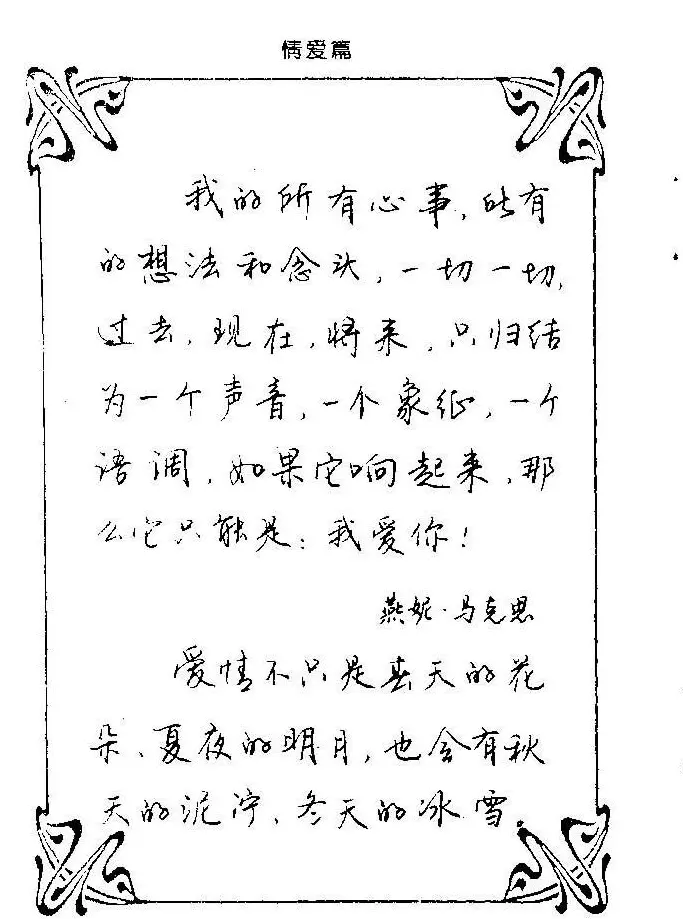 情爱篇
我的所有心事,所有
的想法和念头,一切一切,
过去,现在,将来,只归结
为一个声音,一个象征,一个
语调,如果它响起来,那
么它只能是:我爱你!
燕妮·马克思
爱情不只是春天的花
朵、夏夜的明月,也会有秋
天的泥泞、冬天的冰雪。